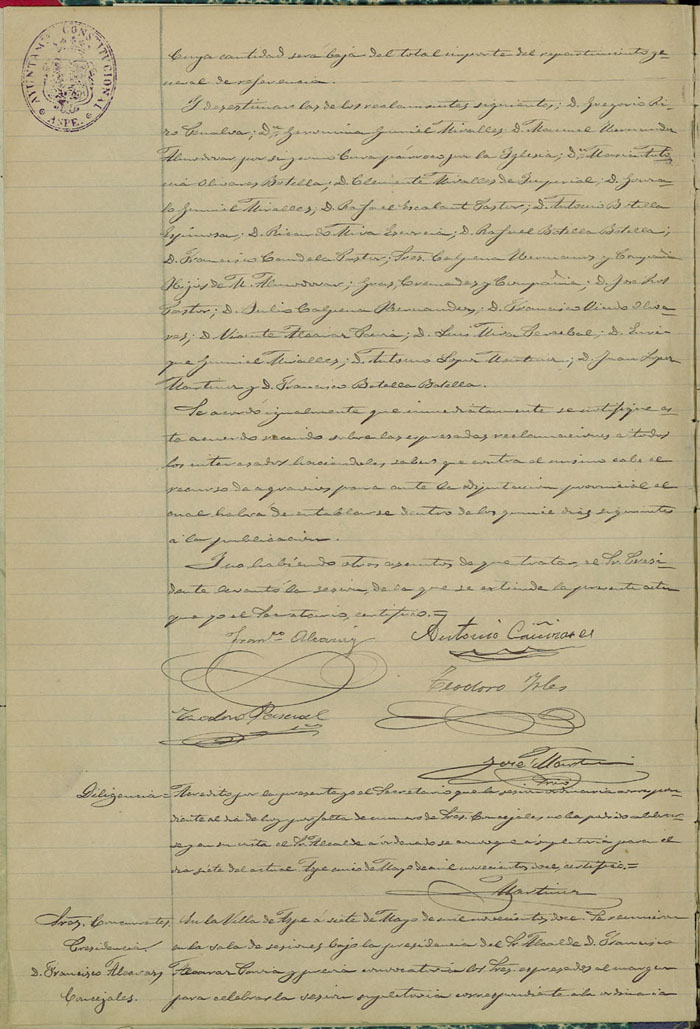 AYUNTAMTO CONSTITUCIONAL
ASPE.
Cuya cantidad sera baja del total importe del repartimiento ge-
neral de referencia.
Y desestimar las de los reclamantes siguientes; D. Gregorio Ri-
zo Cualva; Dª Geronima Gumiel Miralles, D. Manuel
Almodovar por si y como Cura párroco por la Iglesia; Dª
Olivares Botella; D. Clemente Miralles de Imperial; D. Gonza-
lo Gumiel Miralles; D. Rafael Escalant Pastor; D. Antonio Botella
Espinosa; D. Ricardo Mira Escurcia; D. Rafael Botella Botella;
D. Francisco Candela Pastor; Sres. Calpena Hermanos y Compañia
Hijos de M. Almodovar; Gras, Cremades y Compañia; D. José
Pastor; D. Julio Calpena Hernandez; D. Francisco Oliva-
res; D. Vicente Alcaraz Soria; D. Luis Mira; D. Enri-
que Gumiel Miralles; D. Antonio Lopez Martinez; D. Juan Lopez
Martinez y D. Francisco Botella Botella.
Se acordó igualmente que inmediatamente se notifique es-
te acuerdo recaido sobre las espresadas reclamaciones á todos
los interesados haciendoles saber que contra el mismo cabe el
recurso de agravios para ante la Diputacion provincial el
cual habrá de entablarse dentro de los quince dias siguientes
a la publicacion.
Y no habiendo otros asuntos de que tratar, el Sr. Presi-
dente levantó la sesion, de la que se estiende la presente acta
que yo el Secretario, certifico. =
Franco Alcaraz
Antonio Cañizares
Teodoro
Teodoro Pascual
José Martinez
Diligencia = Acredito por la presente yo el Secretario que la sesion ordinaria correspon-
diente al dia de hoy por falta de numero de Sres. Concejales no ha podido celebrar-
se y en su vista el Sr. Alcalde á ordenado se convoque á supletoria para el
dia siete del actual Aspe cinco de Mayo de mil novecientos doce, certifico. =
Martinez
Sres. Concurrentes
Presidencia
D. Francisco Alcaraz
Concejales.
En la Villa de Aspe á siete de Mayo de mil novecientos doce. Se reunieron
en la sala de sesiones bajo la presidencia del Sr. Alcalde D. Francisco
Alcaraz Soria y previa convocatoria los Sres. espresados al margen
para celebrar la sesion supletoria correspondiente a la ordinaria